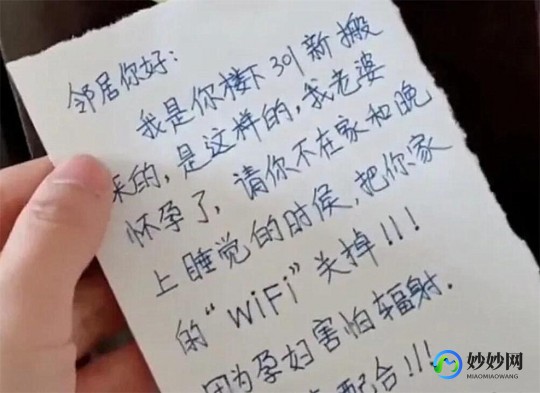 邻居你好：
我是你楼下301新搬
来的，是这样的，我老婆
怀孕了，请你不在家和晚
上睡觉的时候，把你家
的“WiFi”关掉！！！
因为孕妇害怕辐射．
配合！！！
妙妙网
MIAOMIAOWANG